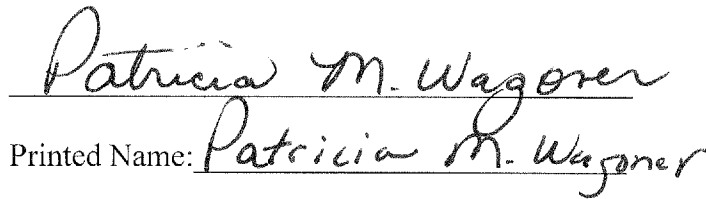 Patricia M. Wagoner
Printed Name: Patricia M. Wagoner